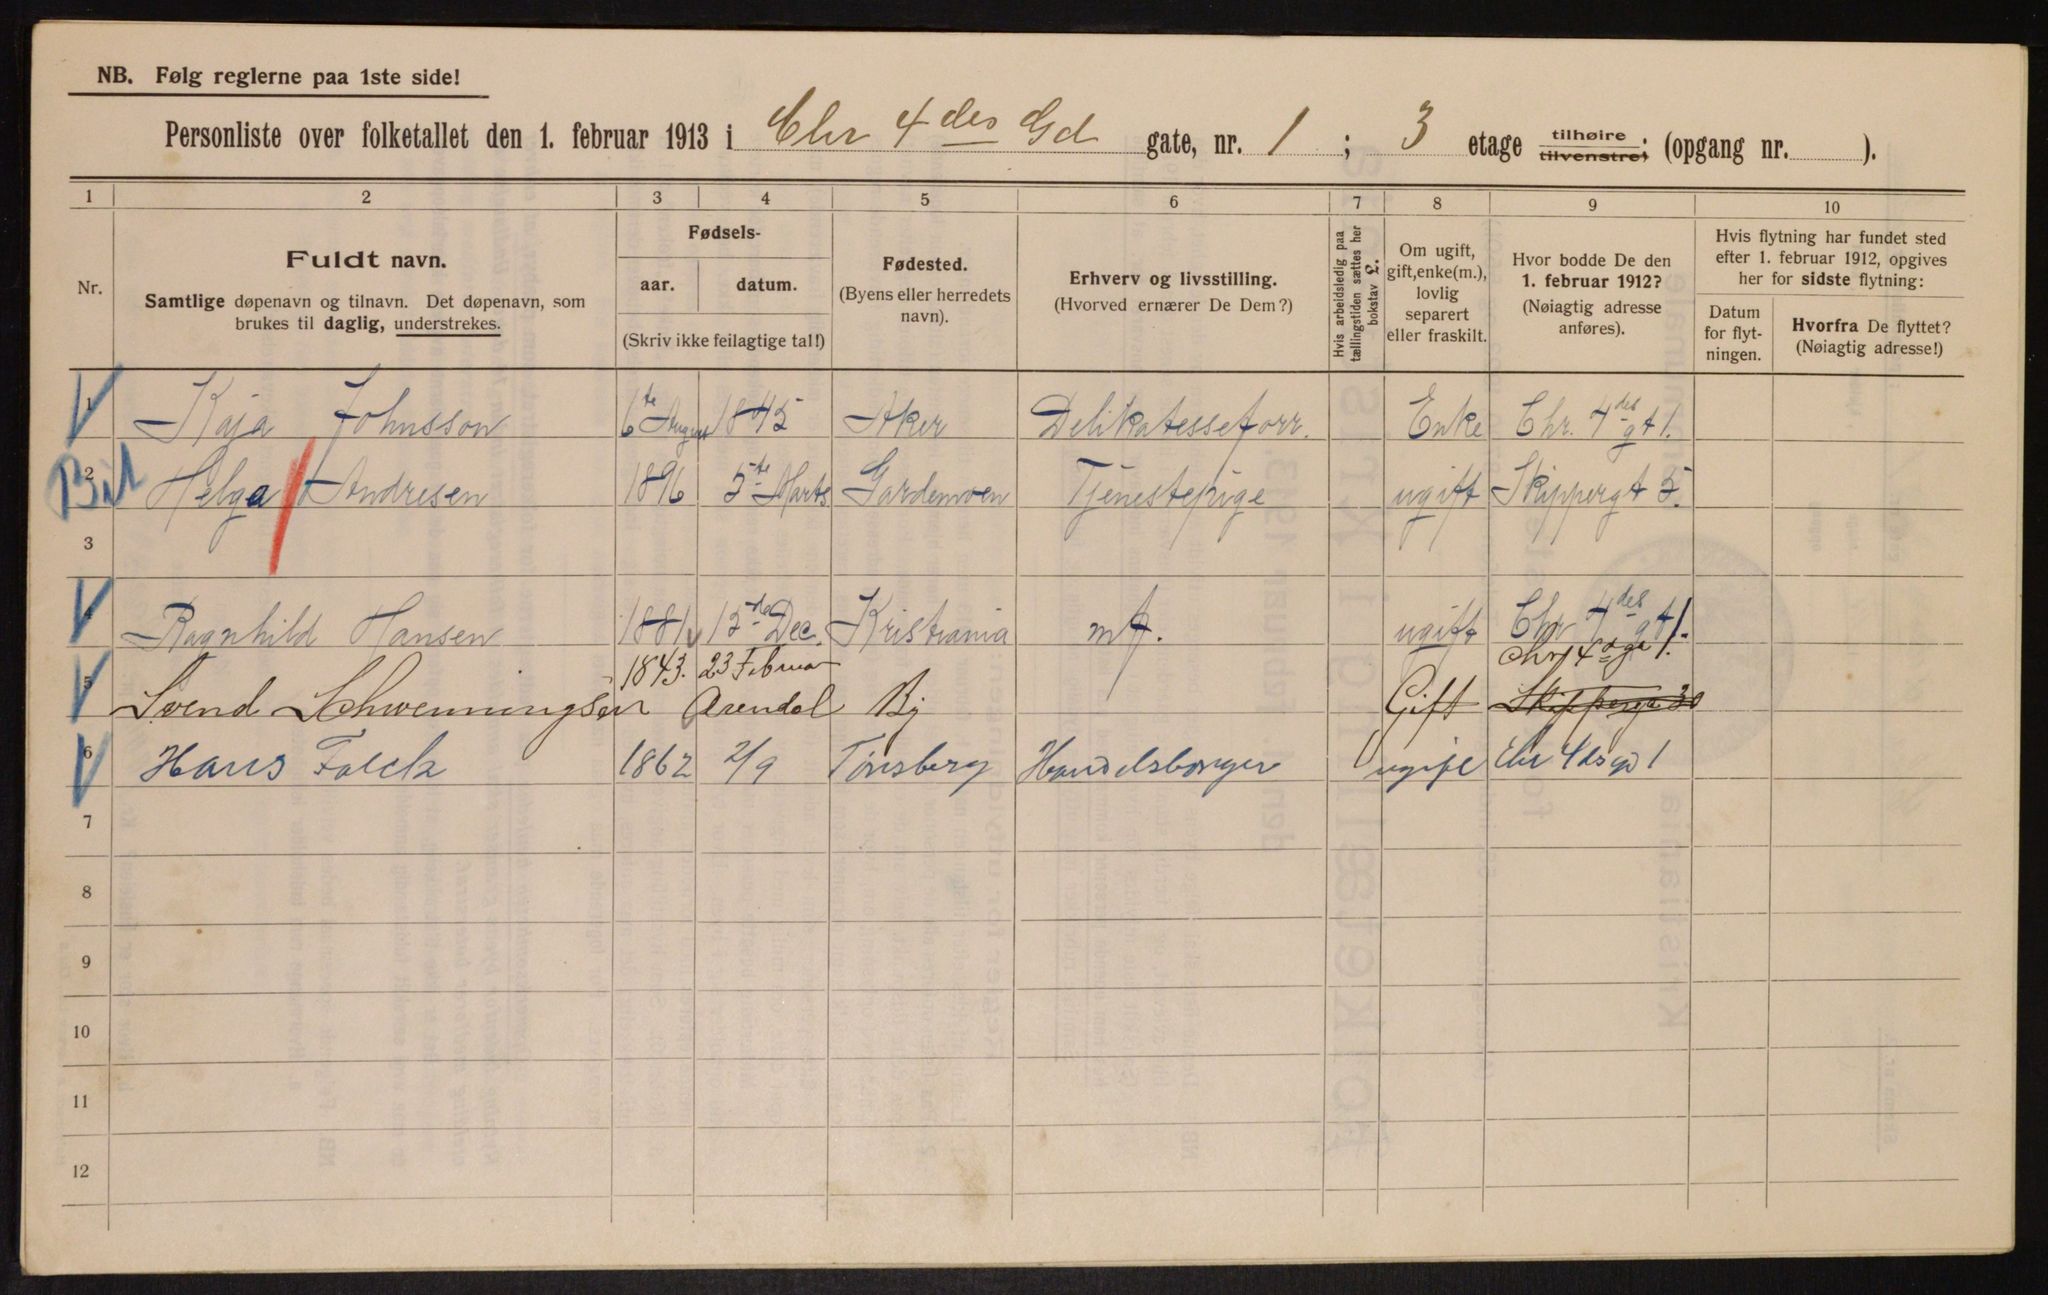 NB. Følg reglerne paa 1ste side!
Personliste over folketallet den 1. februar 1913 i Chr 4des Gd gate, nr. 1 ; 3 etage tilhøire tilvenstre; (opgang nr. ).
1 2 3 4 5 6 7 8 9 10
Nr.
Fuldt navn.
Samtlige døpenavn og tilnavn. Det døpenavn, som
brukes til daglig, understrekes.
Fødsels-
aar. datum.
(Skriv ikke feilagtige tal!)
Fødested.
(Byens eller herredets
navn).
Erhverv og livsstilling.
(Hvorved ernærer De Dem?)
Hvis arbeidsledig paa
tællingstiden sættes her
bokstav L.
Om ugift,
gift, enke(m.),
lovlig
separert
eller fraskilt.
Hvor bodde De den
1. februar 1912?
(Nøiagtig adresse
anføres).
Hvis flytning har fundet sted
efter 1. februar 1912, opgives
her for sidste flytning:
Datum
for flyt-
ningen.
Hvorfra De flyttet?
(Nøiagtig adresse!)
1 Kaja Johnsson 6te August 1845 Aker Delikatesseforr. Enke Chr. 4des gt 1.
2 Helga Andresen 1896 5te Marts Gardemoen Tjenestepige ugift Skippergt 5.
3
4 Ragnhild Hansen 1881 12te Dec. Kristiania ugift Chr 4des gt 1.
1843. 23 Februar Chr 4des gt 1.
5 Svend Schwenningsen Arendal By Gift Skippergt 30
6 Hans Falck 1862 2/9 Tønsberg Handelsborger ugift Chr 4des gd 1
7
8
9
10
11
12